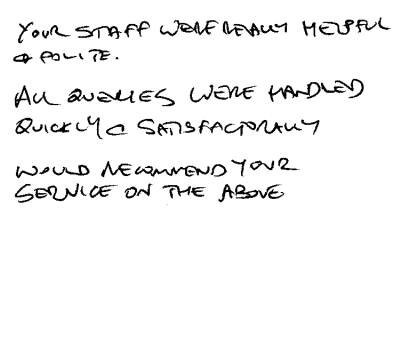 YOUR STAFF WERE REALLY HELPFUL
& POLITE.
ALL QUERIES WERE HANDLED
QUICKLY & SATISFACTORALLY
WOULD RECOMMEND YOUR
SERVICE ON THE ABOVE